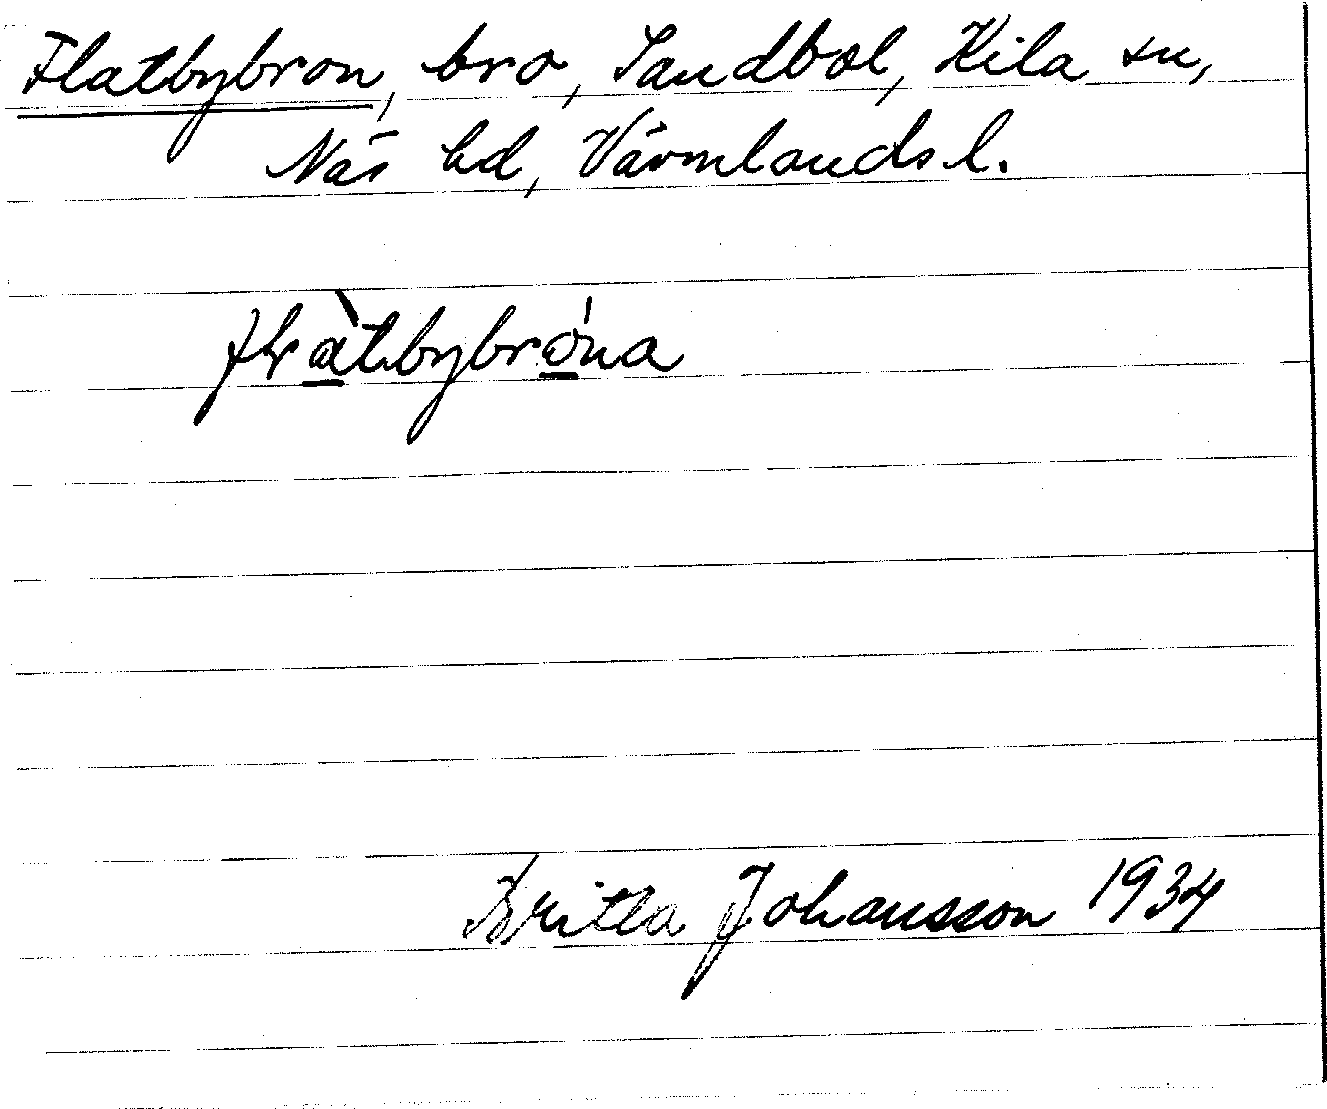 Flatbybron, bro, Sandbol, Kila sn,
Näs hd, Värmlands l.
flàtbybróna
Britta Johansson 1934